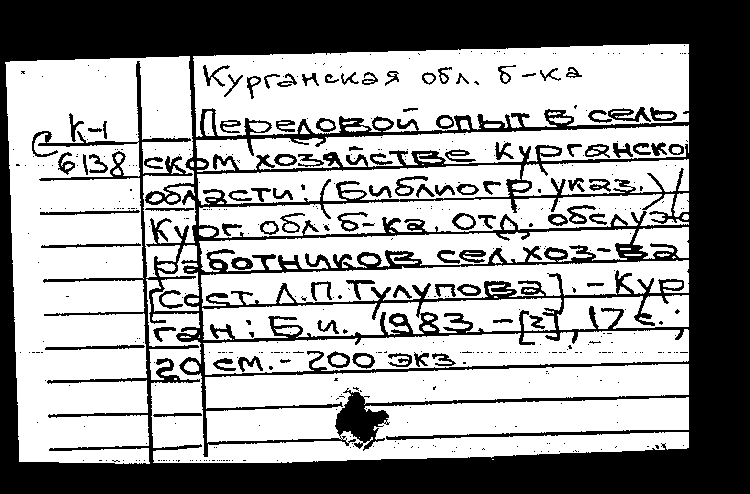 Курганская обл. б-ка
Передовой опыт в сель-
С К-1
6138
ском хозяйстве Курганско
области: (Библиогр. указ.) /
Кург. обл. б-ка. Отд. обслуж
работников сел. хоз-ва
[Сост. Л.П.Тулупова]. - Кур
ган: Б.и., 1983. - [2], 17 с.;
20 см. - 200 экз.